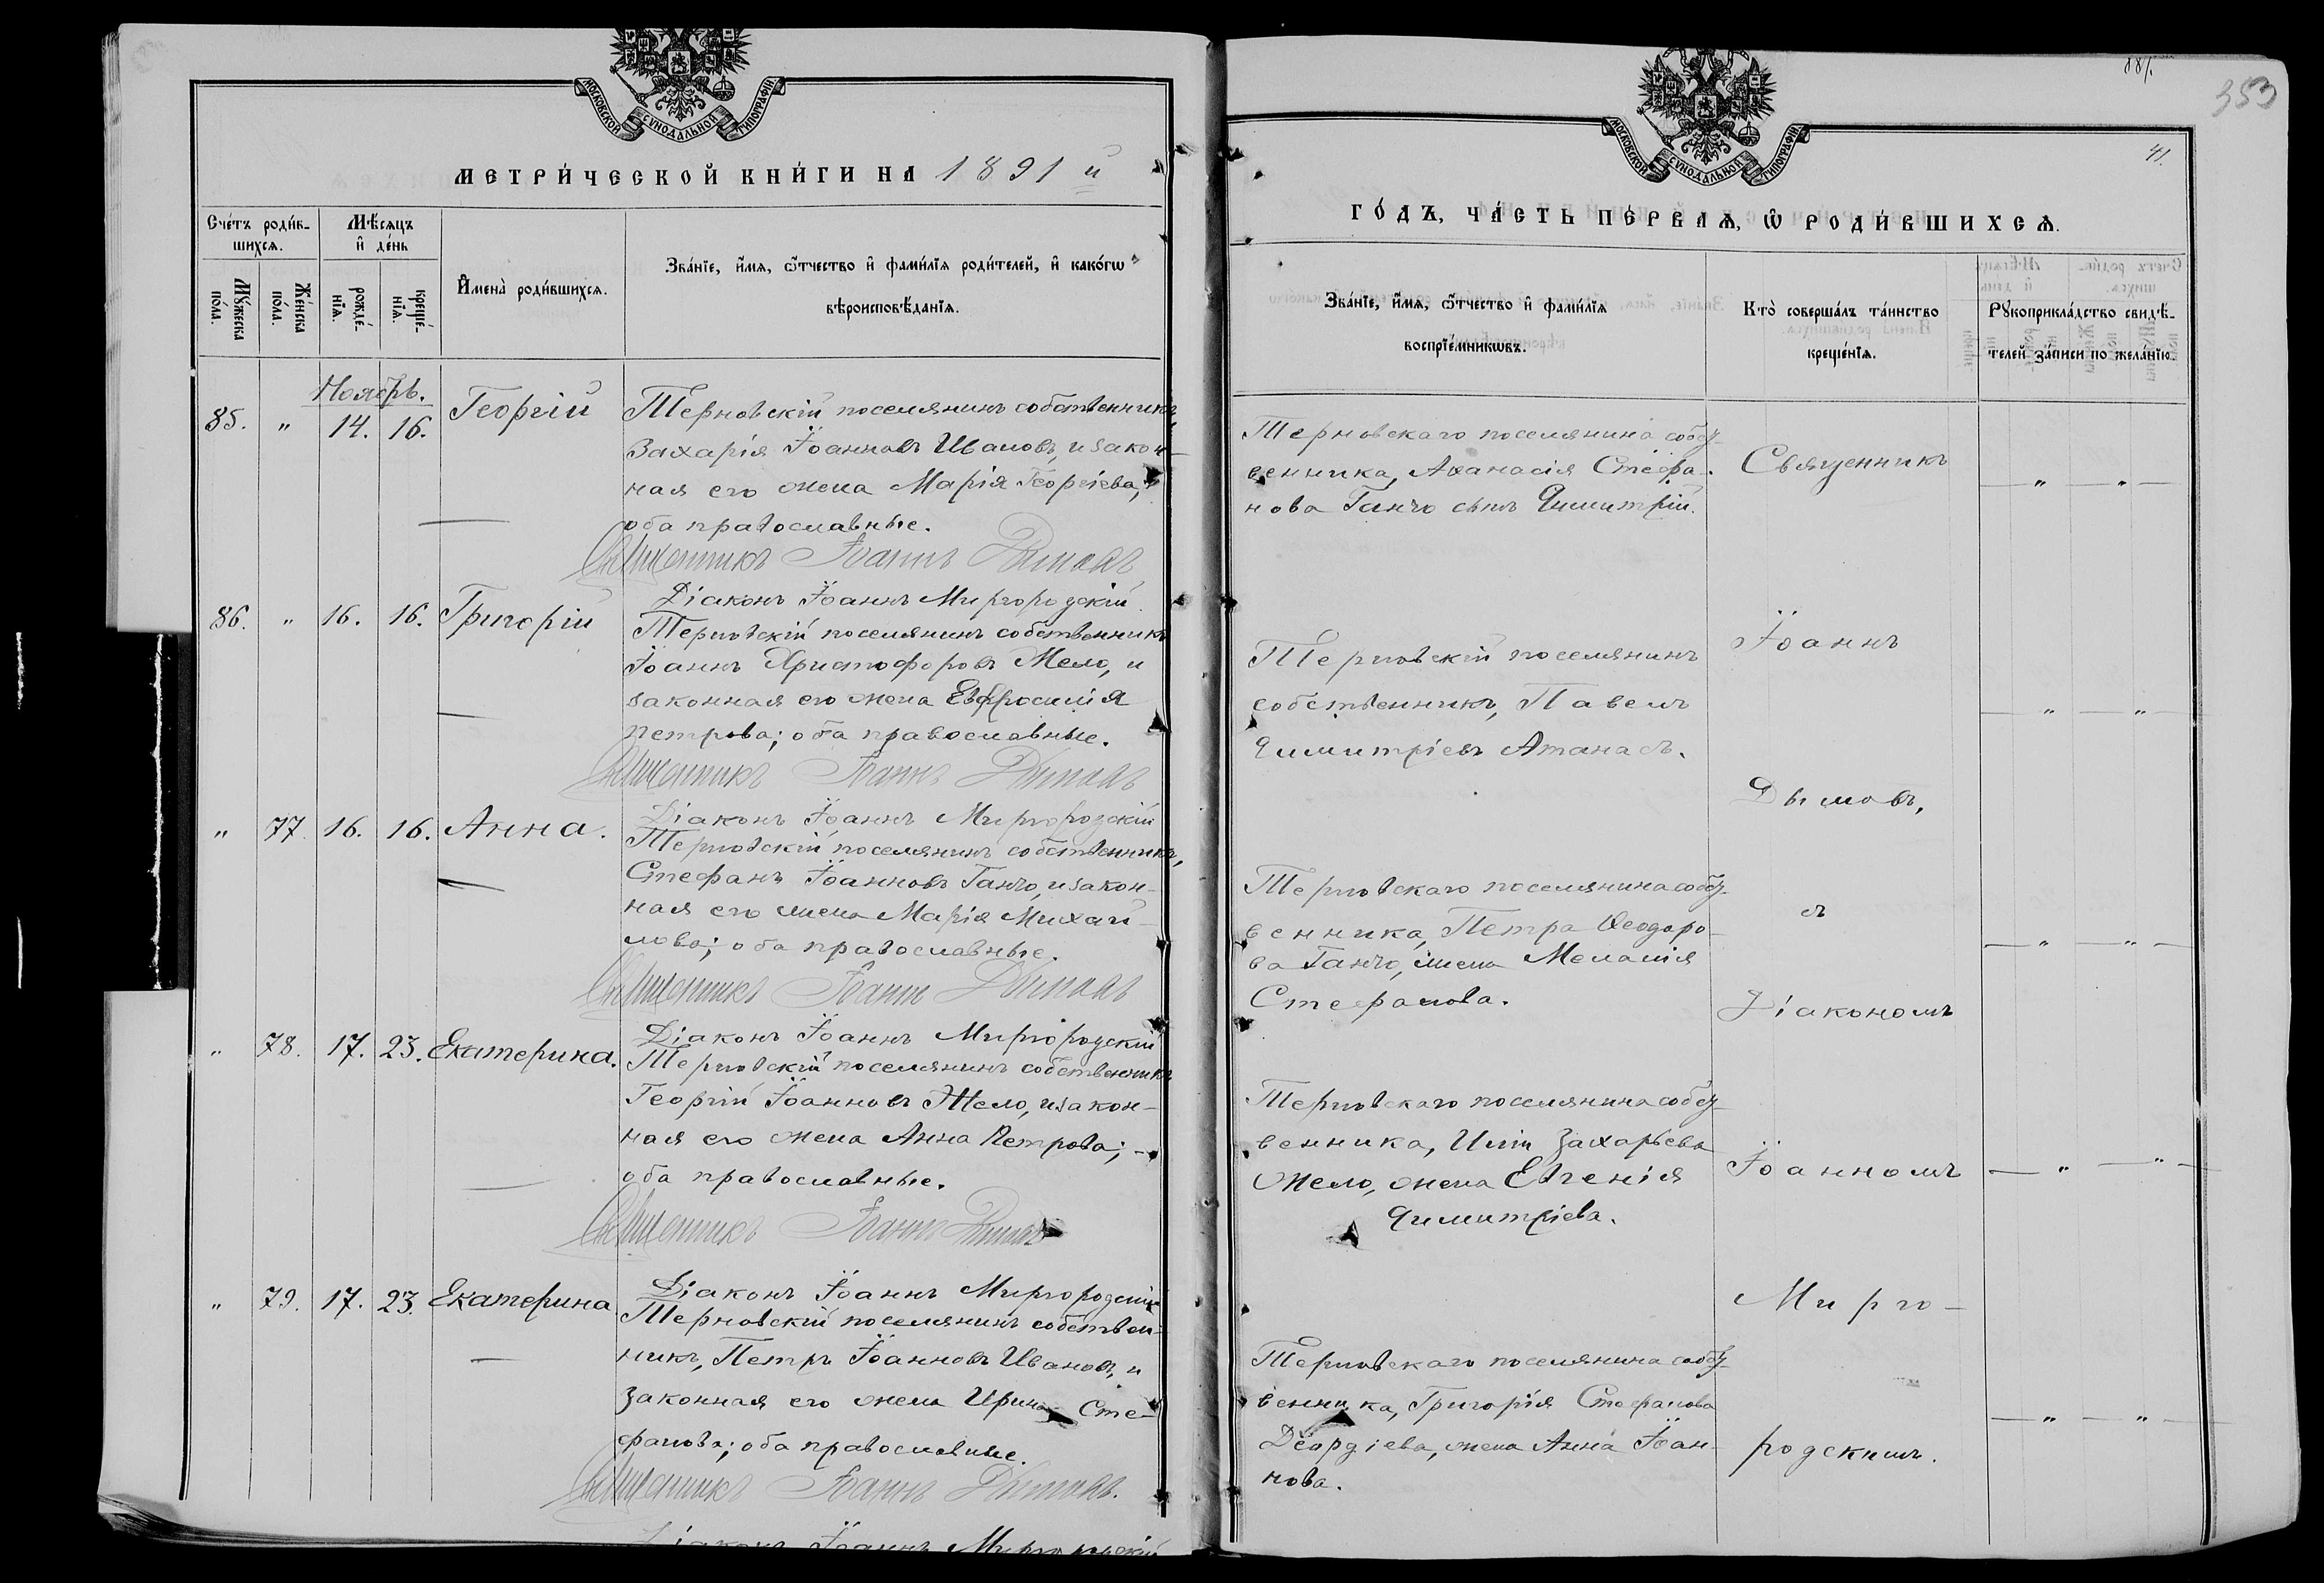 МОСКОВСКОЙ СѴНОДАЛЬНОЙ ТИПОГРАФІИ
МЕТРИ́ЧЕСКОЙ КНИ́ГИ НА 1891 й
Сче́тъ роди́в-
шихся.
Мѣ́сяцъ
и҆ де́нь
Мꙋ́жеска
по́ла.
Же́нска
по́ла.
рожде́-
нїѧ.
креще́-
нїѧ.
И҆мена̀ роди́вшихся.
Зва́нїе, и҆́мѧ, ѻ҆́тчество и҆ фами́лїѧ роди́телей, и҆ како́гѡ
вѣроисповѣ́данїѧ.
Ноябрь.
85. " 14. 16. Георгій
Терновскій поселянинъ собственникъ,
Захарія Іоанновъ Ивановъ, и закон-
ная его жена Марія Георгіева,
оба православные.
Священникъ Іоаннъ Дымовъ
Діаконъ Іоаннъ Миргородскій.
86. " 16. 16. Григорій
Терновскій поселянинъ собственникъ
Іоаннъ Христофоровъ Мело, и
законная его жена Евфросинія
Петрова; оба православные.
Священникъ Іоаннъ Дымовъ
Діаконъ Іоаннъ Миргородскій
" 77. 16. 16. Анна.
Терновскій поселянинъ собственникъ,
Стефанъ Іоанновъ Ганчо, и закон-
ная его жена Марія Михай-
лова; оба православные.
Священникъ Іоаннъ Дымовъ
Діаконъ Іоаннъ Миргородскій
" 78. 17. 23. Екатерина.
Терновскій поселянинъ собственникъ
Георгій Іоанновъ Жело, и закон-
ная его жена Анна Петрова; -
оба православные.
Священникъ Іоаннъ Дымовъ
Діаконъ Іоаннъ Миргородскій
" 79. 17. 23. Екатерина
Терновскій поселянинъ собствен-
никъ, Петръ Іоанновъ Ивановъ, и
законная его жена Ирина Сте-
фанова; оба православные.
Священникъ Іоаннъ Дымовъ.
Діаконъ Іоаннъ Миргородскій
353
41.
МОСКОВСКОЙ СѴНОДАЛЬНОЙ ТИПОГРАФІИ
ГО́ДЪ, ЧА́СТЬ ПЕ́РВАѦ, Ѽ РОДИ́ВШИХСѦ.
Зва́нїе, и҆́мѧ, ѻ҆́тчество и҆ фами́лїѧ
воспрїе́мникѡвъ.
Кто̀ соверша́лъ та́инство
креще́нїѧ.
Рꙋкоприкла́дство свидѣ́-
телей за́писи по жела́нїю.
Терновскаго поселянина собст-
венника, Аѳанасія Стефа-
нова Ганчо сынъ Димитрій.
Терновскій поселянинъ
собственникъ, Павелъ
Димитріевъ Атанасъ.
Терновскаго поселянина собст-
венника, Петра Ѳеодоро-
ва Ганчо, жена Меланія
Стефанова.
Терновскаго поселянина собст-
венника, Иліи Захарьева
Жело, жена Евгенія
Димитріева.
Терновскаго поселянина собст-
венника, Григорія Стефанова
Деордіева, жена Анна Іоан-
нова.
Священникъ
Іоаннъ
Дымовъ,
съ
Діакономъ
Іоанномъ
Мирго-
родскимъ.